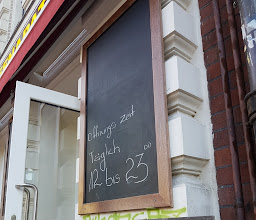 Öffnungs zeit
Täglich
12 bis 23⁰⁰